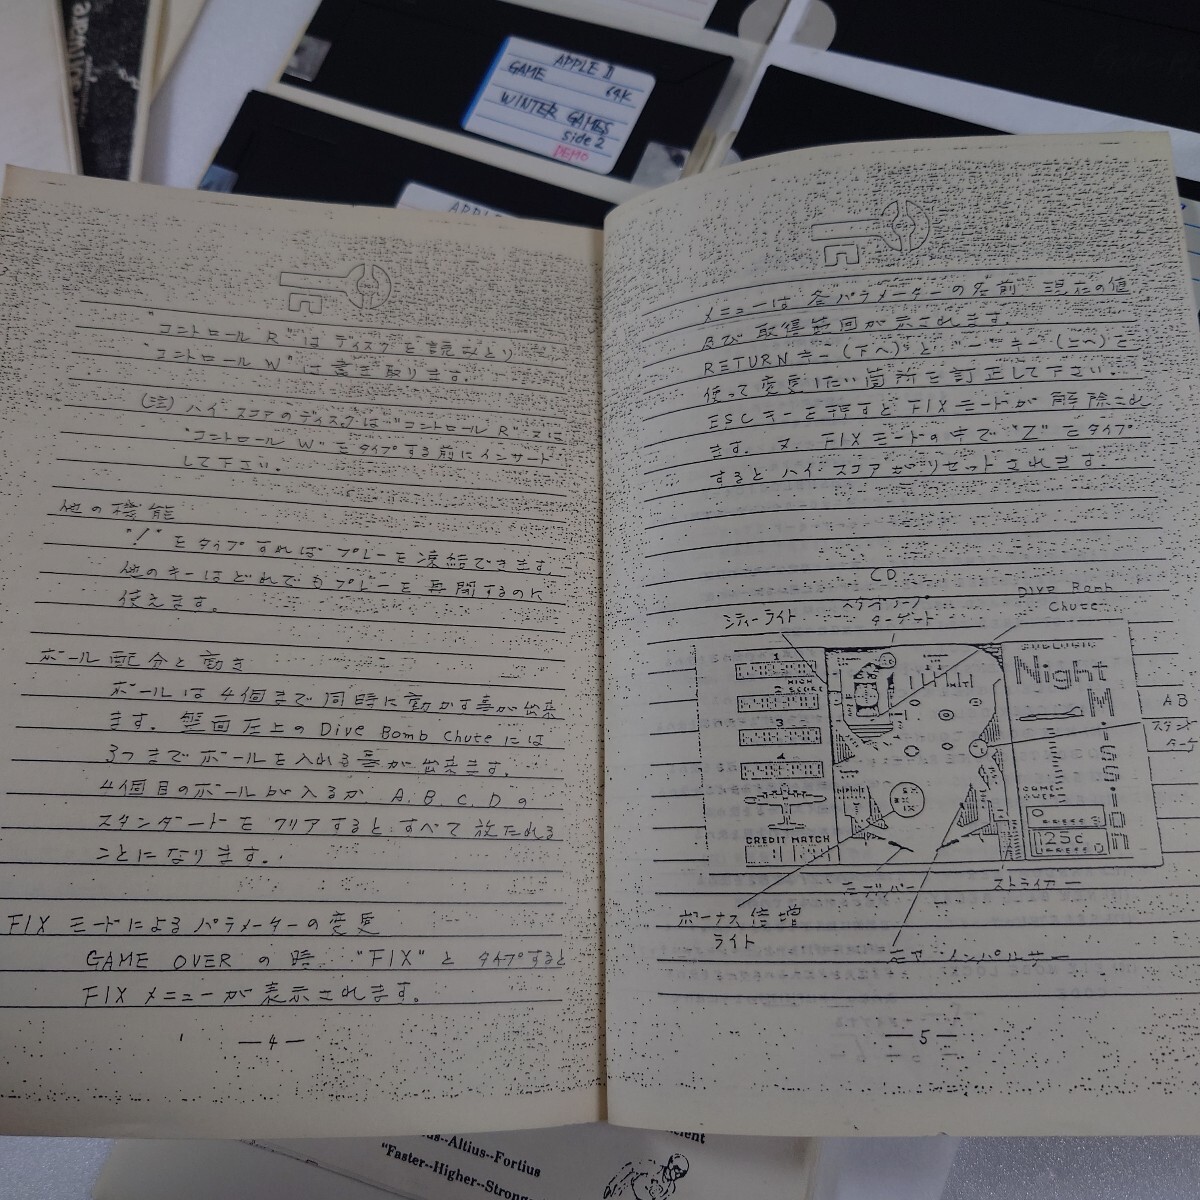 APPLE II
GAME 64K
WINTER GAMES
side 2
DEMO
"コントロール R"はディスクを読みとり
"コントロール W"は書き取ります。
(注) ハイ・スコアのディスクは"コントロール R"又は
"コントロール W"をタイプする前にインサート
して下さい。
他の機能
"!"をタイプすれば プレーを凍結できます。
他のキーはどれでもプレーを再開するのに
使えます。
ボール配分と動き
ボールは4個まで同時に動かす事が出来
ます。盤面左上のDive Bomb Chuteには
3つまでボールを入れる事が出来ます。
4個目のボールが入るか、A.B.C.Dの
スタンダードをクリアすると、すべて放たれる
ことになります。
FIX モードによるパラメーターの変更
GAME OVER の時 "FIX" と タイプすると
FIX メニューが表示されます。
—4—
メニューは 各パラメーターの名前 現在の値
及び 取得範囲が示されます。
RETURNキー(下へ)と"-"キー(上へ)を
使って変更したい箇所を訂正して下さい。
ESCキーを押すとFIXモードが解除され
ます。又、FIXモードの中で"Z"をタイプ
するとハイ・スコアがリセットされます。
CD
Dive Bomb
Chute
シティーライト
ターゲート
1
HIGH
SCORE
3
4
CREDIT MATCH
Night
Mission
25¢
AB
ボーナス倍増
ライト
ストライカー
—5—
-Altius--Fortius
"Faster--Higher--Stronge